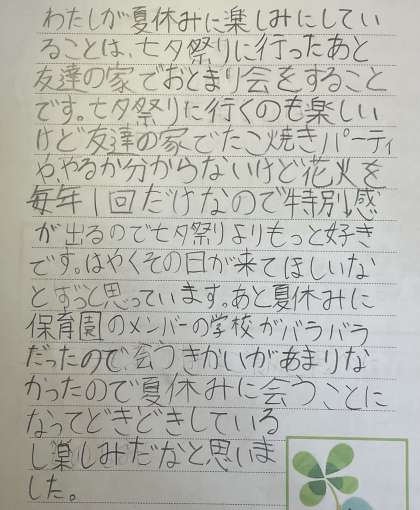 わたしが夏休みに楽しみにしてい
ることは、七夕祭りに行ったあと
友達の家でおとまり会をすること
です。七夕祭りに行くのも楽しい
けど友達の家でたこ焼きパーティ
や、やるか分からないけど花火を
毎年1回だけなので特別感
が出るので七夕祭りよりもっと好き
です。はやくその日が来てほしいな
とずっと思っています。あと夏休みに
保育園のメンバーの学校がバラバラ
だったので会うきかいがあまりな
かったので夏休みに会うことに
なってどきどきしている
し楽しみだなと思いま
した。